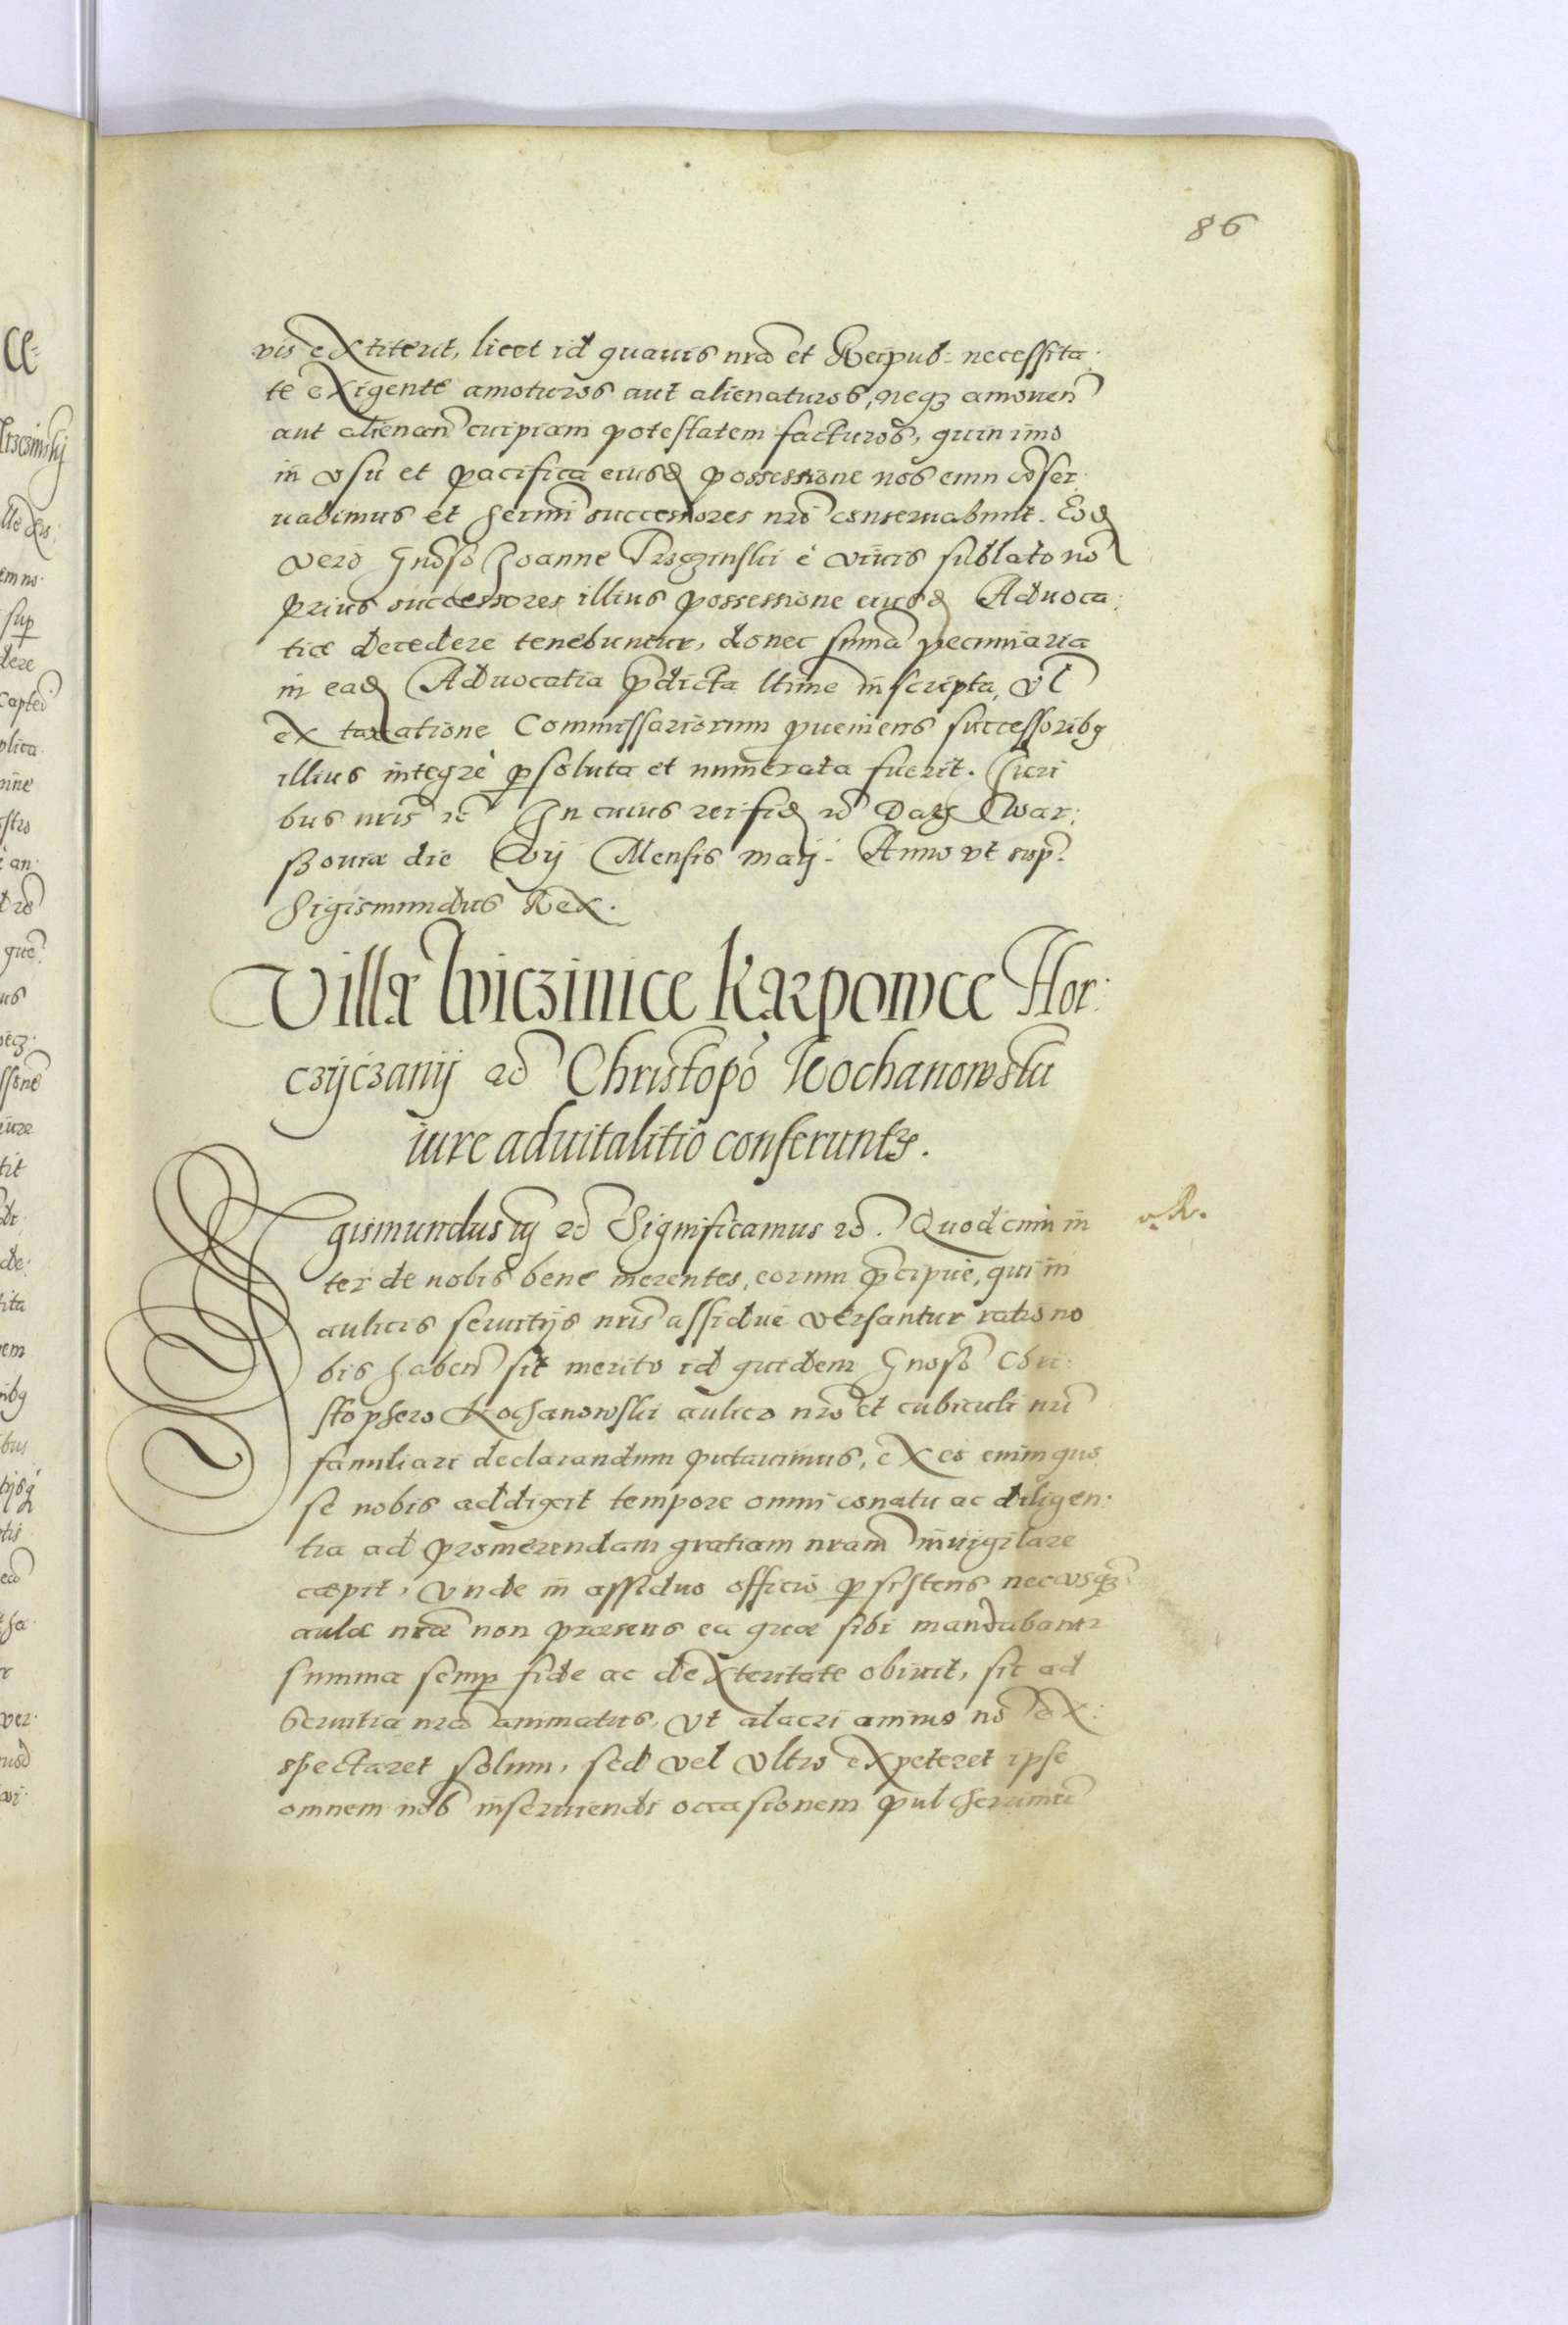 86
vis extiterit, licet id quavis nrã et Reipub: necessita
te exigente amoturos aut alienaturos, neqʒ amoven̄
aut alienan̄ cuipiam potestatem facturos, quin imo
in usu et pacifica eiusd possessione nos eum cōser
uabimus et serm̄i successores nrī conseruabunt. Eod
vero Gnōso Joanne Trzczinski è viuis sublato nō
prius successores illius possessione eiusd Aduoca:
tiæ decedere tenebuntur, donec sum̄a pecuniaria
in ead Aduocatia p̄dicta ltīme inscripta, vl̄
ex taxatione Commissariorum proueniens successoribꝫ
illius integrè persoluta et numerata fuerit. Juri
bus nrīs rc̄ In cuius rei fid rc̄ Datꝫ War:
szouiæ die Xvij Mensis maij. Anno vt sup̄.
Sigismundus Rex.
Villæ Wiczinice Karpowce Hor:
czijczanij rc̄ Christopō Kochanowski
iure aduitalitio conferuntr.
Sigismundus iij rc̄ Significamus rc̄. Quod cum in
ter de nobis bene merentes, eorum p̄cipuè, qui in
aulicis seruitijs nrīs assiduè versantur ratio no
bis haben̄ sit merito id quidem Gnoso Chri:
stophero Kochanowski aulico nrō et cubiculi nrī
familiari declarandum putauimus, ex eo enim quo
se nobis addixit tempore omni conatu ac diligen:
tia ad promerendam gratiam nram̄ inuigilare
cæpit, vnde in assiduo officio persistens nec usqꝫ
aulæ nræ non præsens ea quæ sibi mandabantr
summa semp fide ac dexteritate obiuit, sic ad
seruitia nrā animatus, vt alacri animo nō ex:
spectaret solum, sed vel vltro expeteret ipse
omnem nob inseruiendi occasionem pulcherrimū